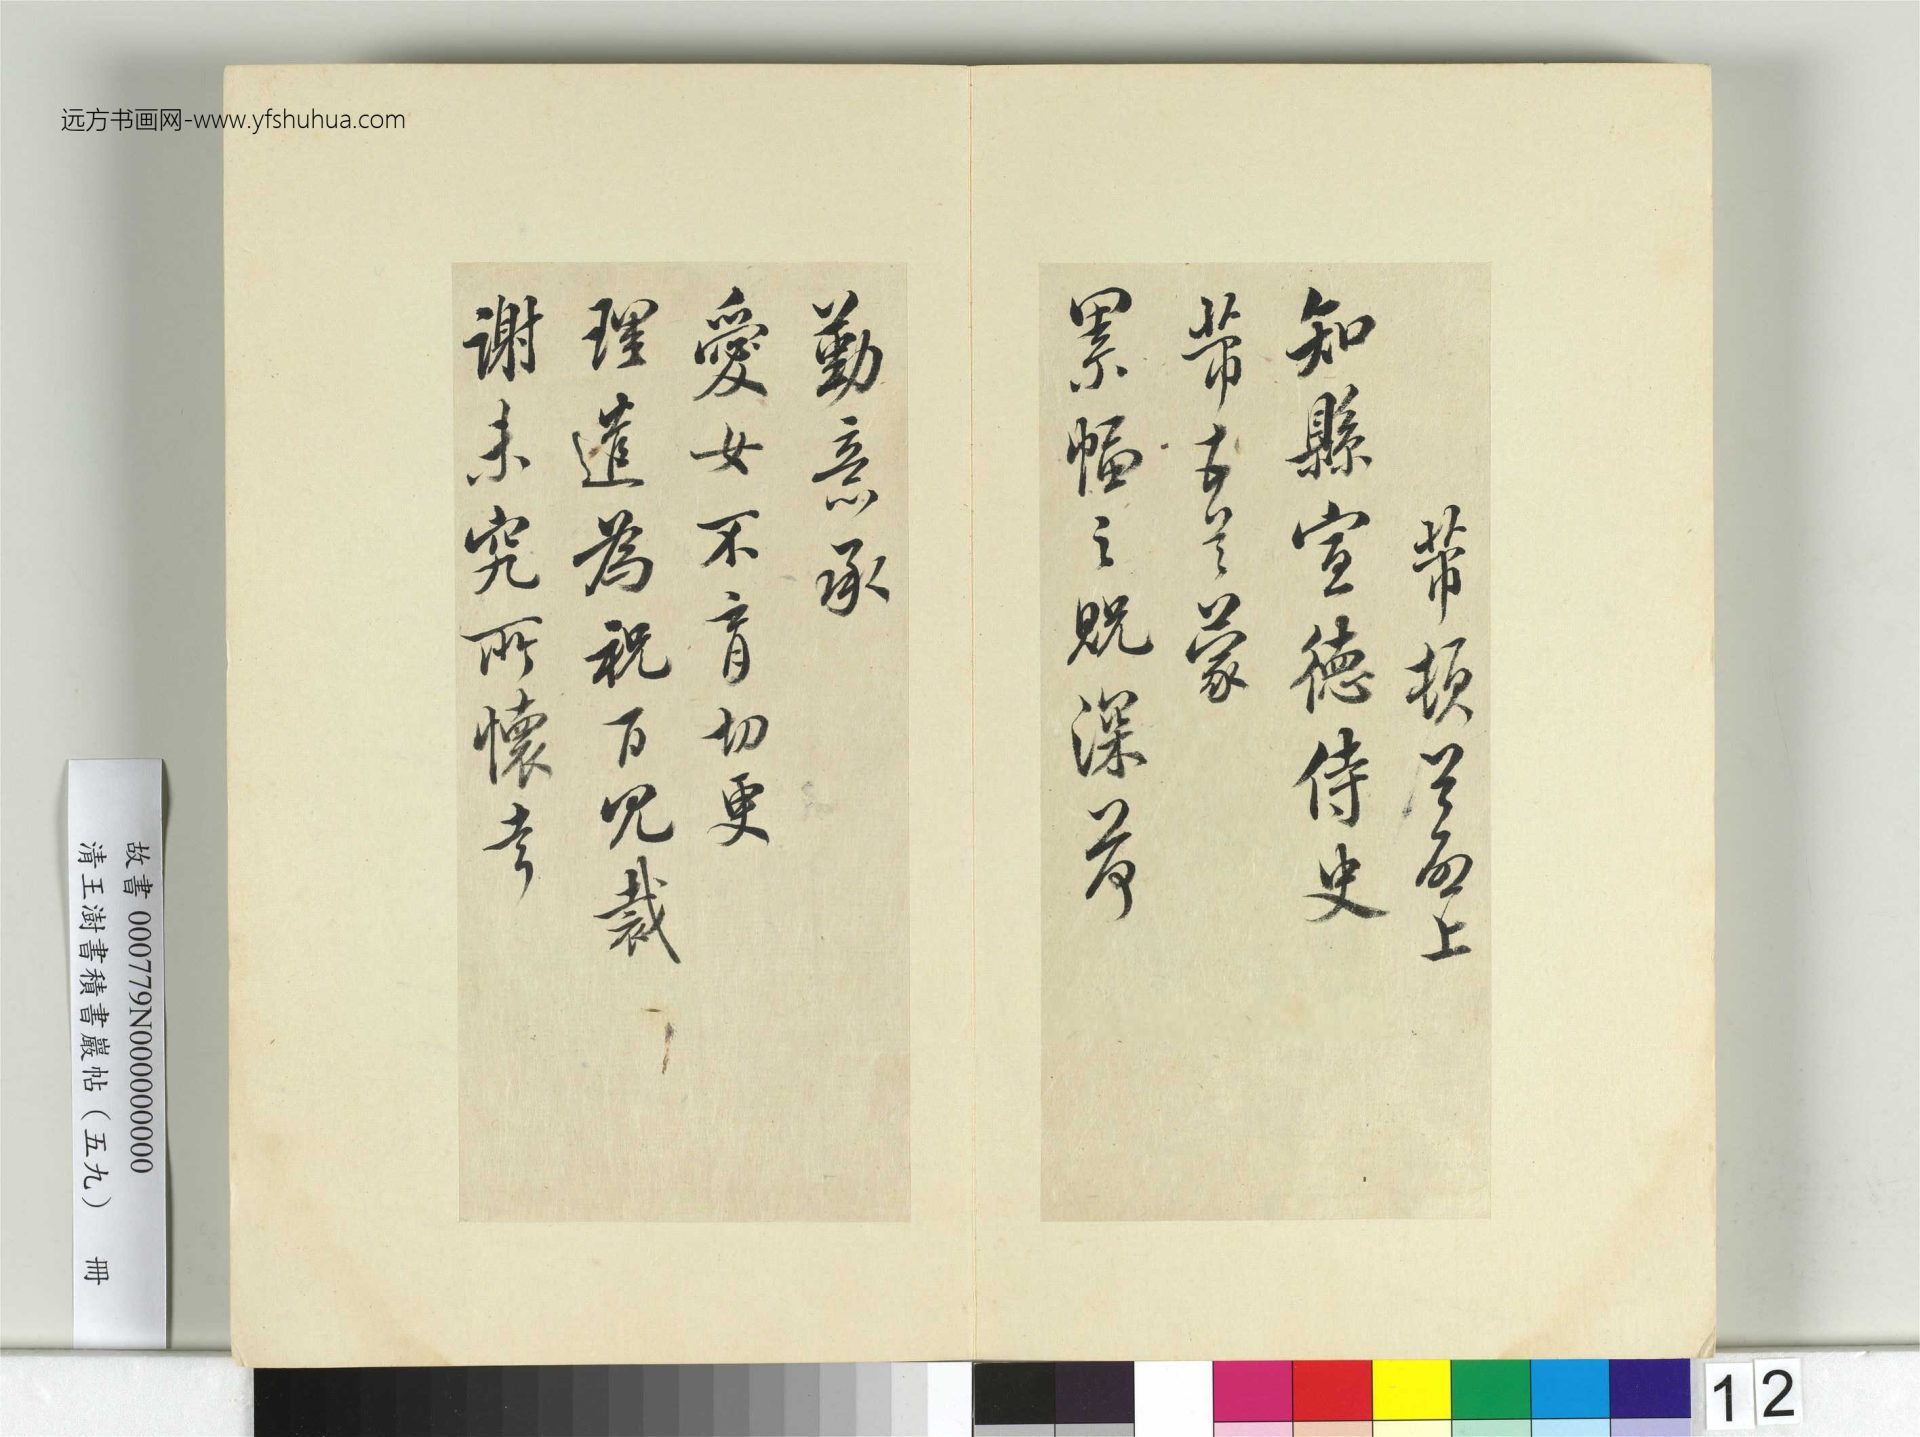 远方书画网-www.yfshuhua.com
芾頓首再上
知縣宣德侍史
芾蒙
累幅之貺深荷
勤意承
愛女不育切更
理遣為祝百冗裁
謝未究所懷幸
故書 000779N000000000
清王澍書積書巖帖(五九) 冊
12